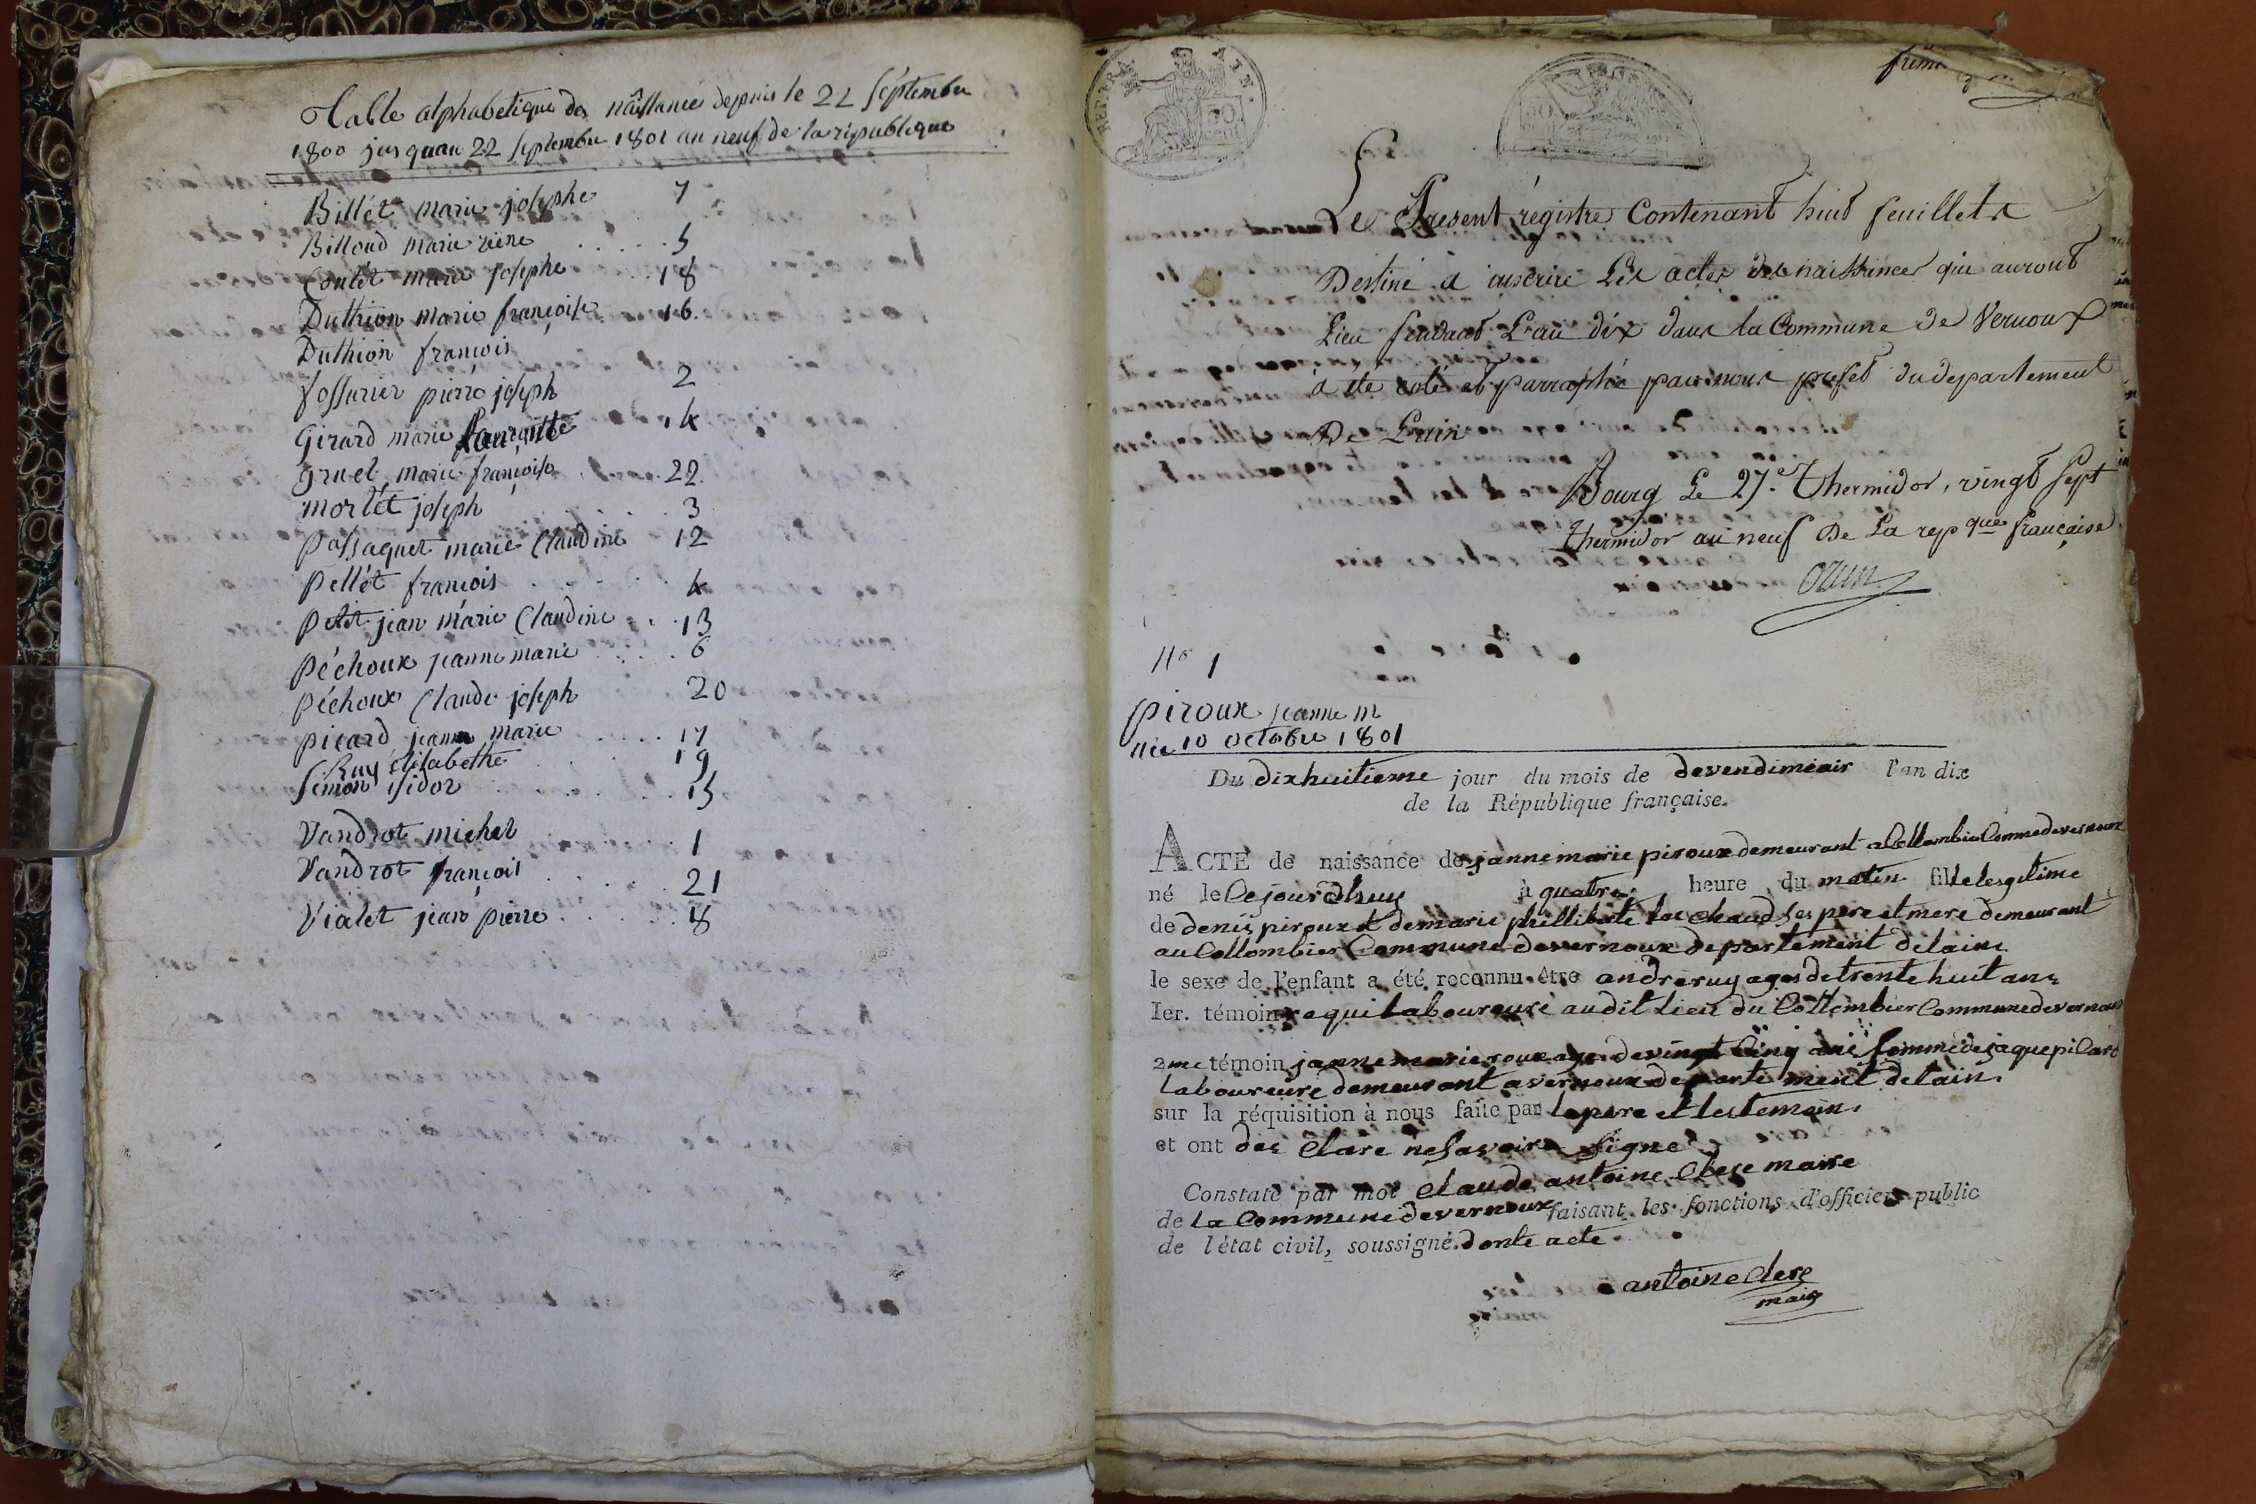 Table alphabetique des naissances depuis le 22 septembre
1800 jusquau 22 septembre 1801 an neuf de la république
Billét marie josephe 7
Billoud marie reine 5
Coulét marie josephe 18
Duthion marie françoise 16
Duthion francois
fossurier pierre joseph 2
Girard marie 14
gruel marie françoise 22
morlét joseph 3
passaquet marie Claudine 12
pellét francois 4
petit jean marie Claudine 13
péchoux jeanne marie 6
péchoux Claude joseph 20
picard jeanne marie 17
Ruy élisabethe 19
Simon isidor 15
Vandrot michel 1
Vandrot françois 21
Vialet jean pierre 8
REP. FRA. 50 cent.
50
Le Present régistre Contenant huit feuillets
Destiné a inscrire Les actes des naissances qui auront
Lieu pendant L'an dix dans la Commune de Vernoux
à été coté et parraphé par nous prefet du departement
De L'ain
Bourg Le 27.e Thermidor, vingt sept
thermidor an neuf De La repque française
ozun
No 1
piroux jeanne m
née 10 octobre 1801
Du dixhuitieme jour du mois de devendimeair l'an dix
de la République française.
ACTE de naissance de jannemarie piroux demeurant a Collombier Commedevernoux
né le Cejourdhuy à quatre heure du matin fillelesgitime
de denis piroux et demarie phillibert ses pere et mere demeurant
au Collombier Commune devernoux departement delain
le sexe de l'enfant a été reconnu être andréruy ages detrente huit ans
Ier. témoin requi laboureure audit Lieu du Collombier Communedevernoux
2me témoin jannemarie roux ages devingt Cinq ans femmedejaquepicard
laboureure demeurant avernoux departement delain.
sur la réquisition à nous faite par lepere et lestemoin.
et ont dec Clare nesavoire signe
Constaté par moi Claude antoine Clere maire
de la Commune devernoux faisant les fonctions d'officier public
de l'état civil, soussigné. donte acte
antoine Clere
maire